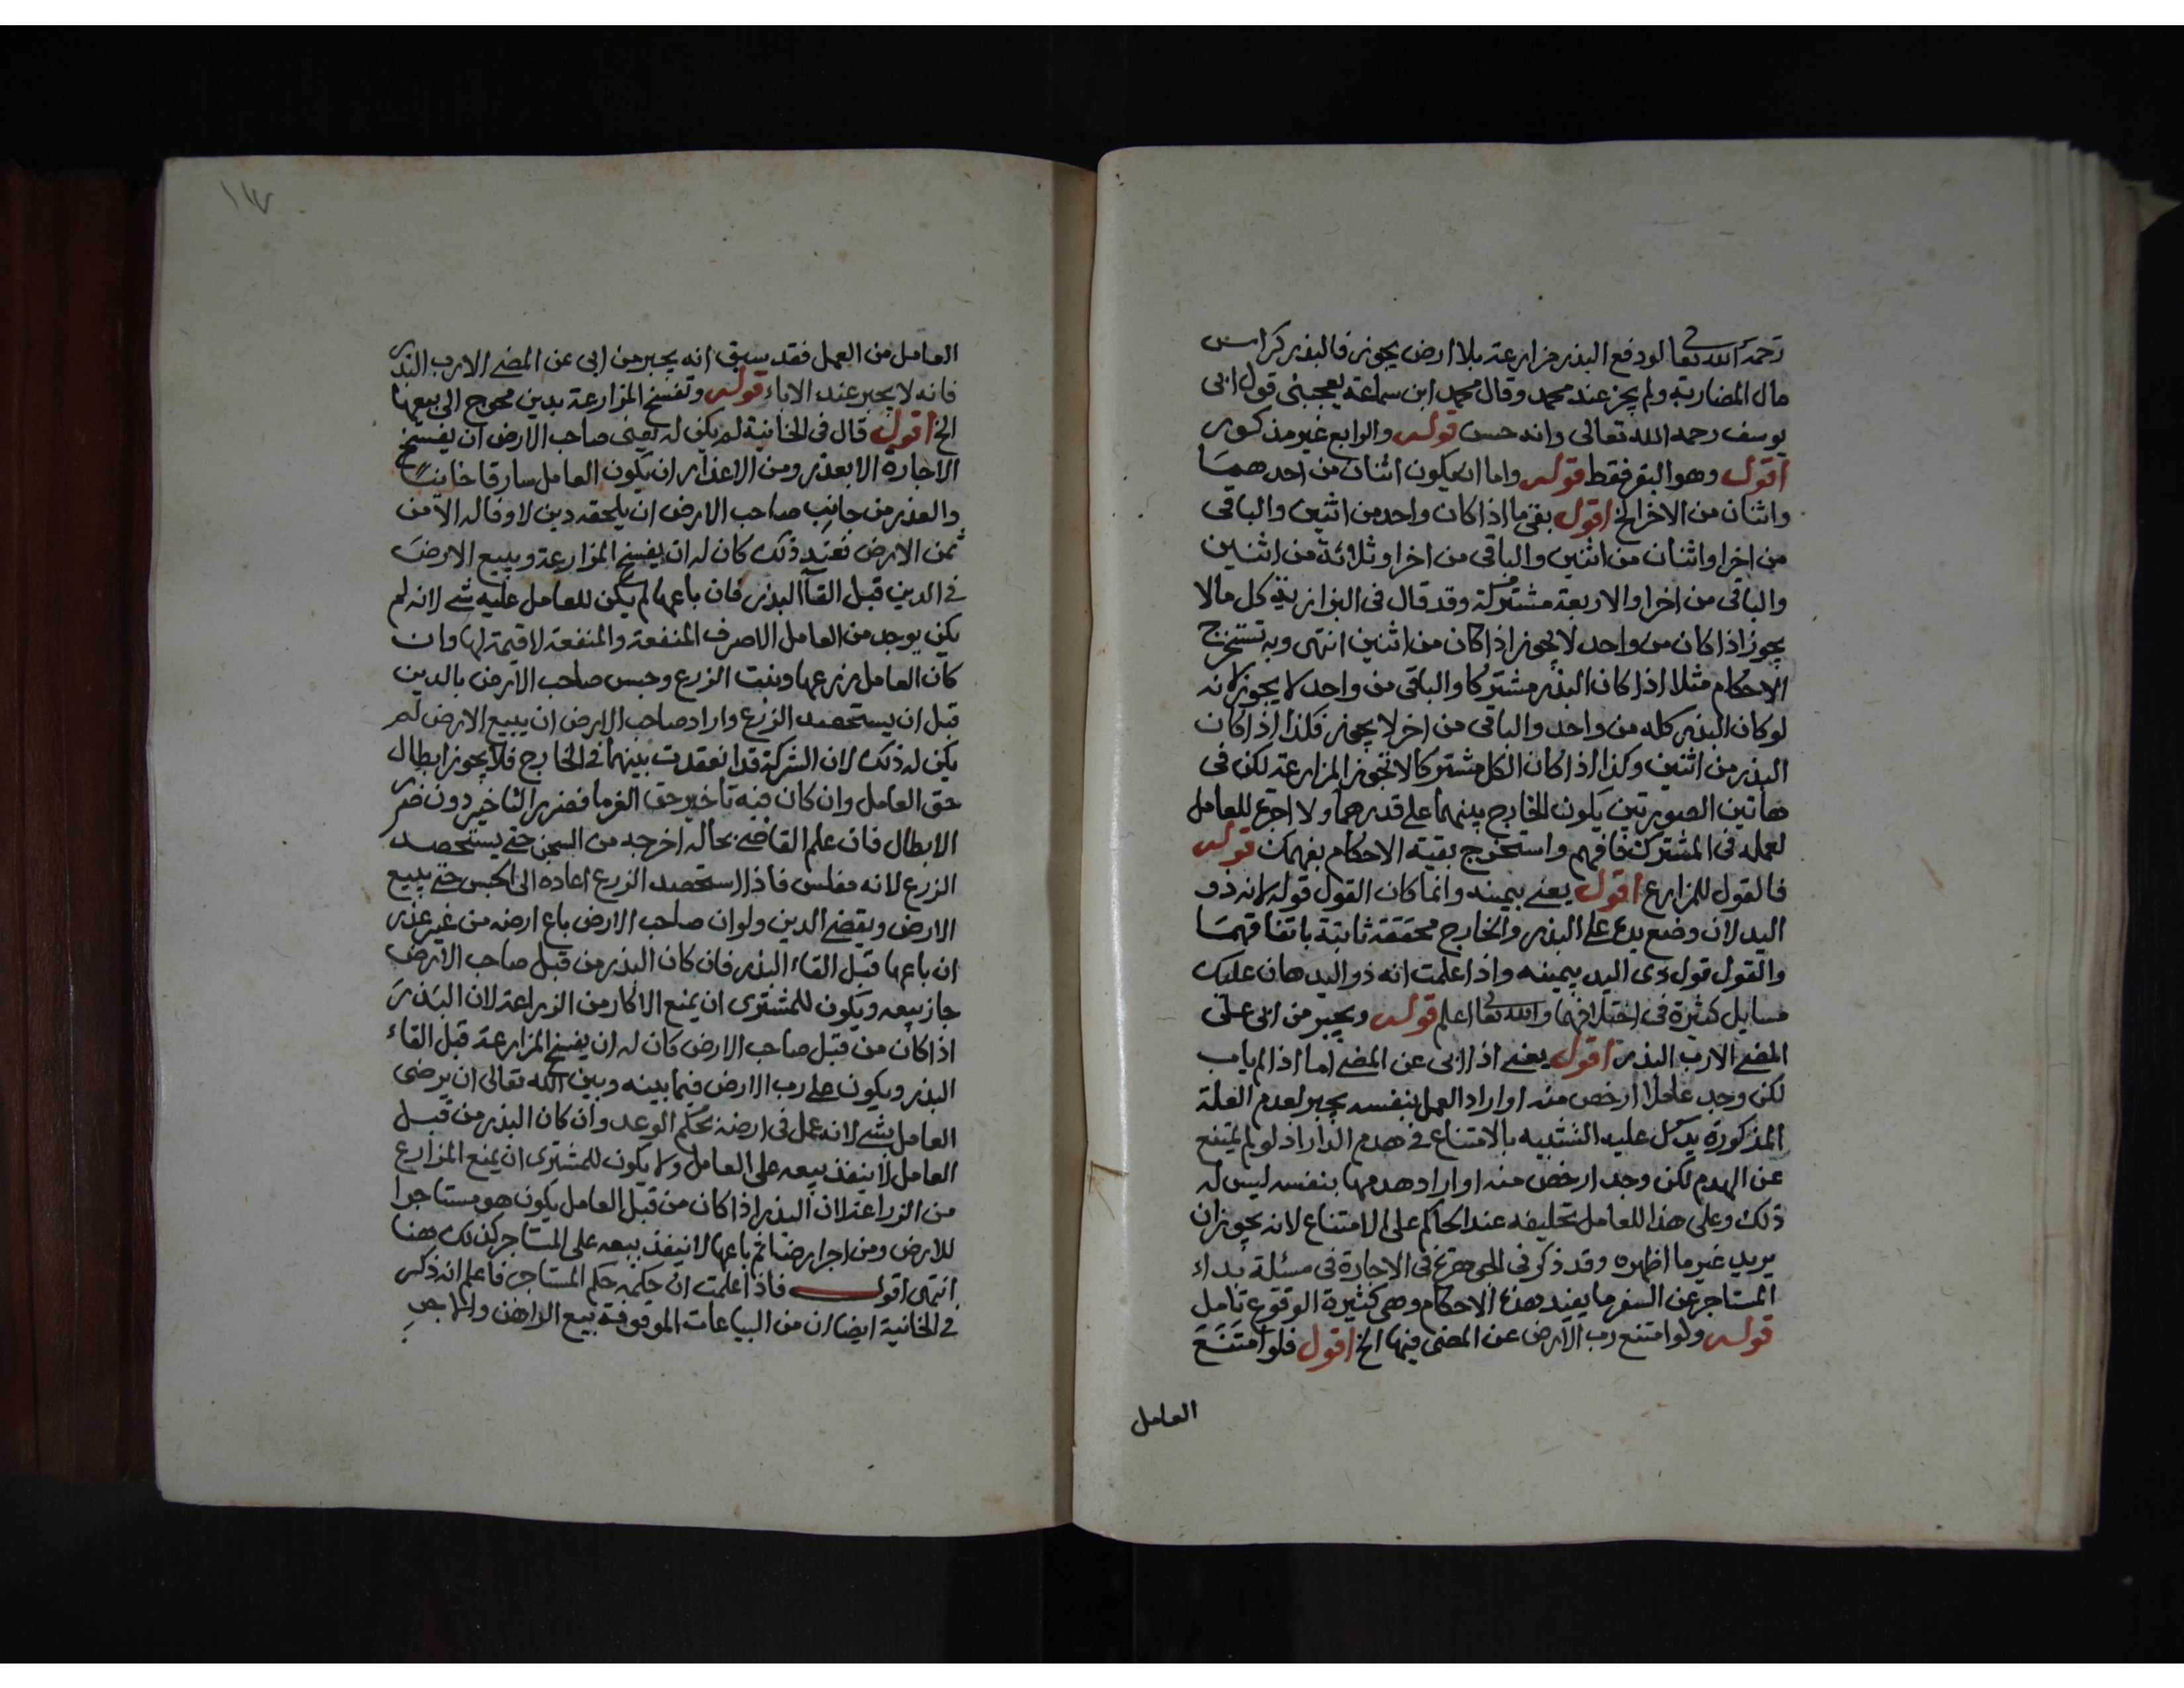 رحمه الله تعا لو دفع البذر مزارعة بلا ارض يجوز فالبذر كراس
مال المضاربة ولم يجز عند محمد وقال محمد ابن سماعة يعجبني قول ابى
يوسف رحمه الله تعالى وانه حسن قوله والرابع غير مذكور
اقول وهو البقر فقط قوله واما ان يكون اثنان من احدهما
واثنان من الاخر الخ اقول بقى ما اذا كان واحد من اثنين والباقى
من اخر او اثنان من اثنين والباقى من اخر او ثلاثة من اثنين
والباقى من اخر او الاربعة مشتركة وقد قال فى البزازية كل مالا
يجوز اذا كان من واحد لا يجوز اذا كان من اثنين انتهى وبه تستخرج
الاحكام مثلا اذا كان البذر مشتركا والباقى من واحد لا يجوز لانه
لو كان البذر كله من واحد والباقى من اخر لا يجوز فكذا اذا كان
البذر من اثنين وكذا اذا كان الكل مشتركا لا تجوز المزارعة لكن فى
هاتين الصورتين يكون الخارج بينهما على قدرهما ولا اجر للعامل
لعمله فى المشترك فافهم واستخرج بقية الاحكام بفهمك قوله
فالقول للمزارع اقول يعنى بيمينه وانما كان القول قوله لانه ذو
اليد لان وضع يده على البذر والخارج محققة ثابتة باتفاقهما
والقول قول ذى اليد بيمينه واذا علمت انه ذو اليد هان عليك
مسايل كثيرة فى اختلافهما والله تعا اعلم قوله ويجبر من ابى على
المضى الا رب البذر اقول يعنى اذا ابى عن المضى اما اذا لم ياب
لكن وجد عاملا ارخص منه او اراد العمل بنفسه يجبر لعدم العلة
المذكورة يدل عليه التشبيه بالامتناع فى هدم الدار اذ لو لم يمتنع
عن الهدم لكن وجد ارخص منه او اراد هدمها بنفسه ليس له
ذلك وعلى هذا للعامل تحليفه عند الحاكم على الامتناع لانه يجوز ان
يريد غير ما اظهره وقد ذكر فى الجوهرة فى الاجارة فى مسئلة بداء
المستاجر عن السفر ما يفيد هذه الاحكام وهى كثيرة الوقوع تامل
قوله ولو امتنع رب الارض عن المضى فيها الخ اقول فلو امتنع
العامل
١٣٧
العامل من العمل فقد سبق انه يجبر من ابى عن المضى الا رب البذر
فانه لا يجبر عند الاباء قوله وتفسخ المزارعة بدين محوج الى بيعها
الخ اقول قال فى الخانية لم يكن له يعنى صاحب الارض ان يفسخ
الاجارة الا بعذر ومن الاعذار ان يكون العامل سارقا خاينا
والعذر من جانب صاحب الارض ان يلحقه دين لا وفا له الا من
ثمن الارض فعند ذلك كان له ان يفسخ المزارعة ويبيع الارض
فى الدين قبل القآ البذر فان باعها لم يكن للعامل عليه شى لانه لم
يكن يوجد من العامل الا صرف المنفعة والمنفعة لا قيمة لها وان
كان العامل زرعها ونبت الزرع وحبس صاحب الارض بالدين
قبل ان يستحصد الزرع واراد صاحب الارض ان يبيع الارض لم
يكن له ذلك لان الشركة قد انعقدت بينهما فى الخارج فلا يجوز ابطال
حق العامل وان كان فيه تاخير حق الغرما فضرر التاخير دون ضرر
الابطال فان علم القاضى بحاله اخرجه من السجن حتى يستحصد
الزرع لانه مفلس فاذا استحصد الزرع اعاده الى الحبس حتى يبيع
الارض ويقضى الدين ولو ان صاحب الارض باع ارضه من غير عذر
ان باعها قبل القاء البذر فان كان البذر من قبل صاحب الارض
جاز بيعه ويكون للمشترى ان يمنع الاكار من الزراعة لان البذر
اذا كان من قبل صاحب الارض كان له ان يفسخ المزارعة قبل القاء
البذر ويكون على رب الارض فيما بينه وبين الله تعالى ان يرضى
العامل بشى لانه عمل فى ارضه بحكم الوعد وان كان البذر من قبل
العامل لا ينفذ بيعه على العامل ولا يكون للمشترى ان يمنع المزارع
من الزراعة لان البذر اذا كان من قبل العامل يكون هو مستاجرا
للارض ومن اجر ارضا ثم باعها لا ينفذ بيعه على المستاجر كذلك هنا
انتهى اقول فاذا علمت ان حكمه حكم المستاجر فاعلم انه ذكر
فى الخانية ايضا ان من البياعات الموقوفة بيع الراهن والمآجر